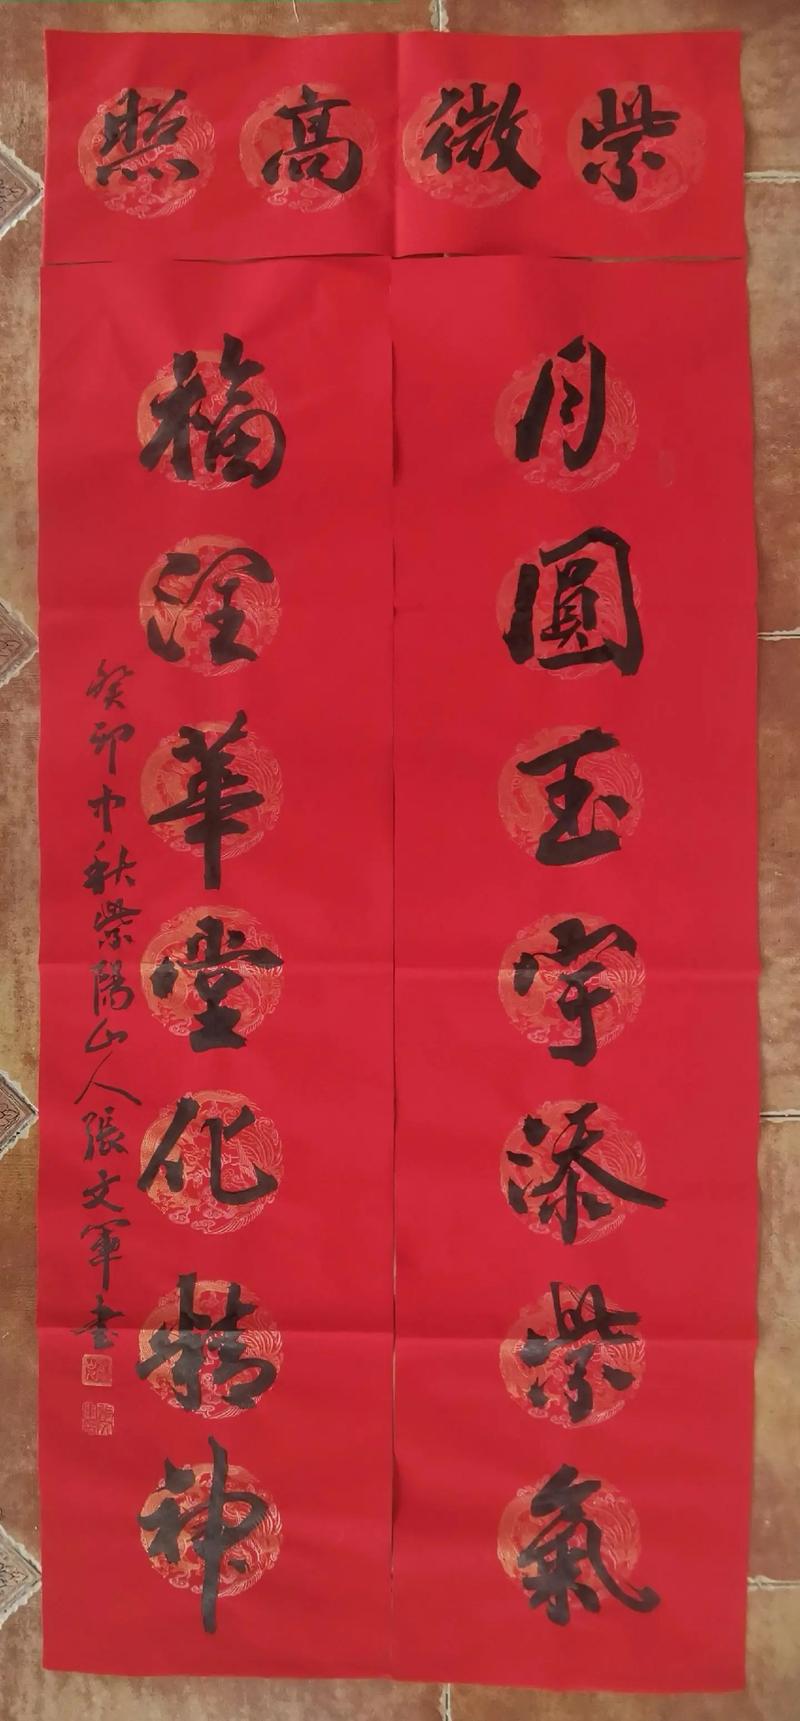 紫微高照
月圓玉宇添紫氣
福淫華堂化精神
癸卯中秋紫陽山人張文軍書